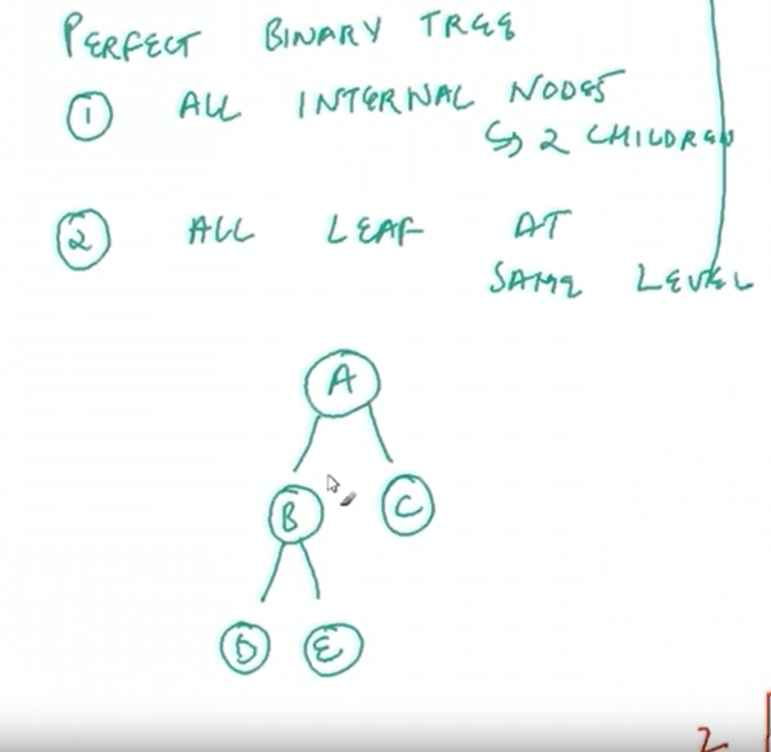 PERFECT BINARY TREE
① ALL INTERNAL NODES
↳ 2 CHILDREN
② ALL LEAF AT
SAME LEVEL
A
B C
D E
2